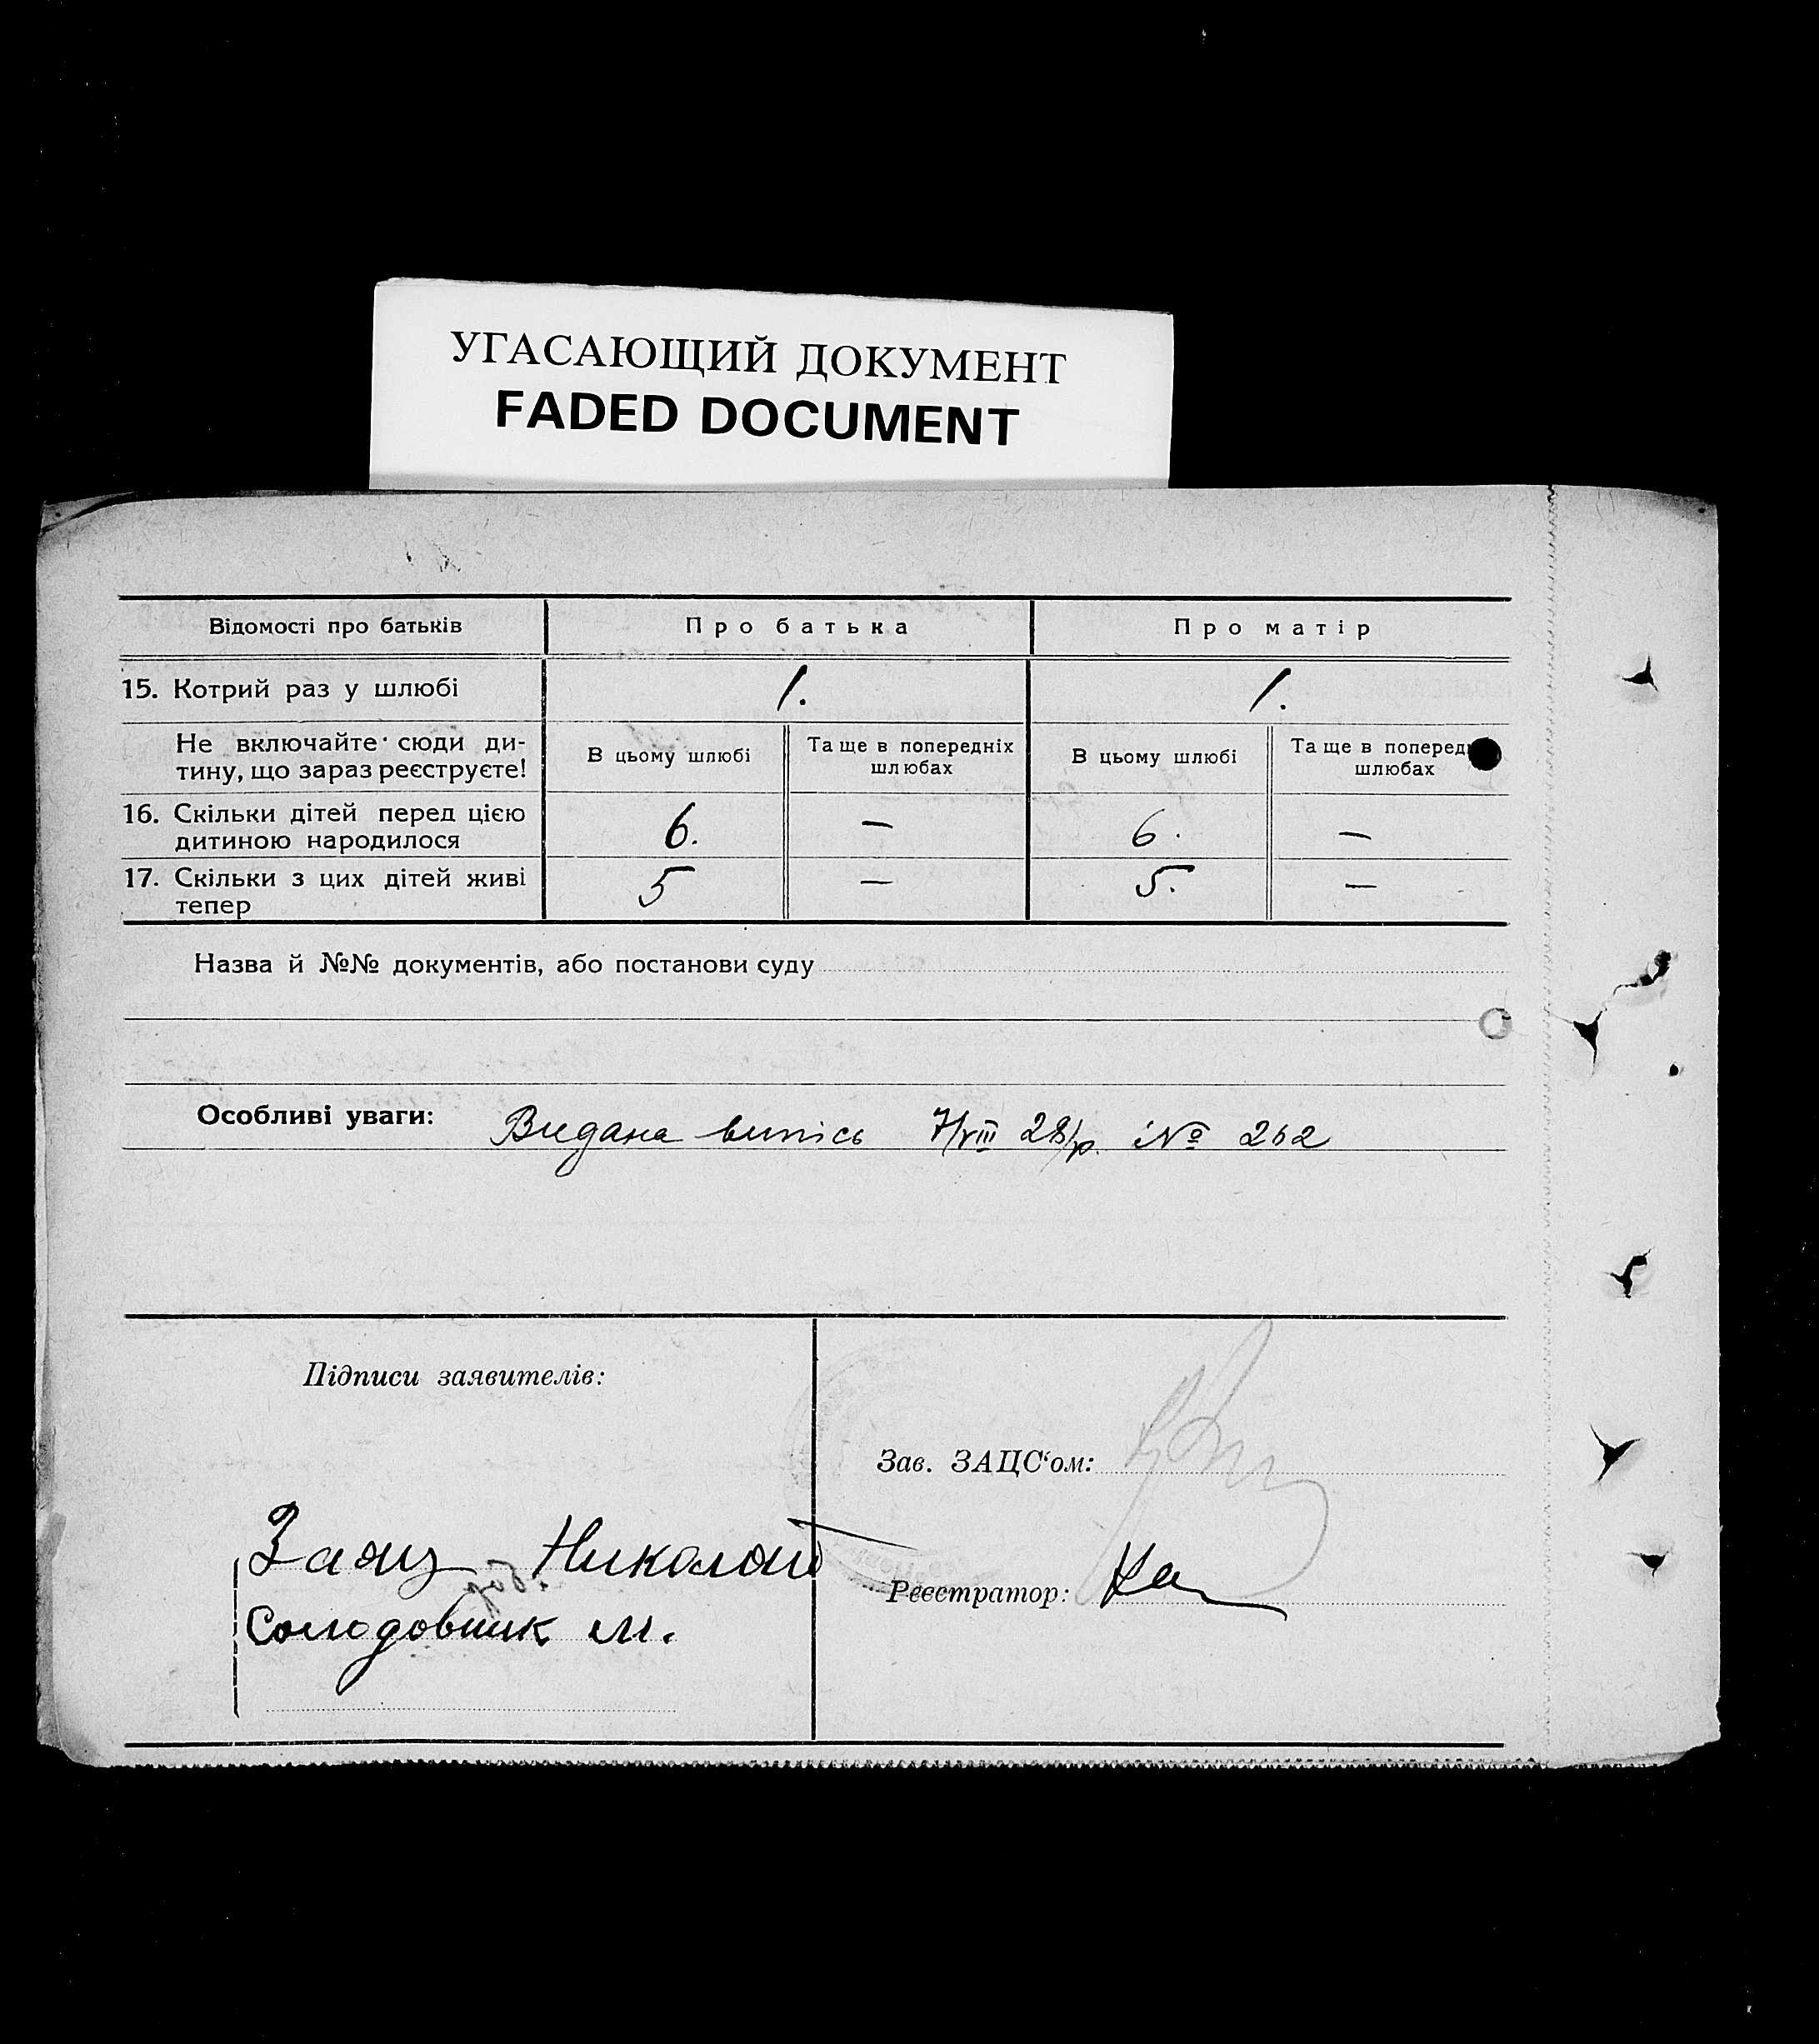 УГАСАЮЩИЙ ДОКУМЕНТ
FADED DOCUMENT
Відомості про батьків
Про батька
Про матір
15. Котрий раз у шлюбі
1.
1.
Не включайте сюди ди-
тину, що зараз реєструєте!
В цьому шлюбі
Та ще в попередніх
шлюбах
В цьому шлюбі
Та ще в поперед
шлюбах
16. Скільки дітей перед цією
дитиною народилося
6.
—
6.
—
17. Скільки з цих дітей живі
тепер
5
—
5.
—
Назва й №№ документів, або постанови суду
Особливі уваги: Видана випісь 7/VIII 28/р. № 262
Підписи заявителів:
Зав. ЗАЦС'ом:
Заяц Николай
Реєстратор:
Солодовник М.